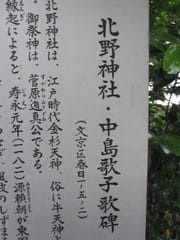 北野神社・中島歌子歌碑
(文京区春日一-五-二)
北野神社は、江戸時代金杉天神、俗に牛天神と
御祭神は、菅原道真公である。
縁起によると、寿永元年(一一八二)源頼朝が東国